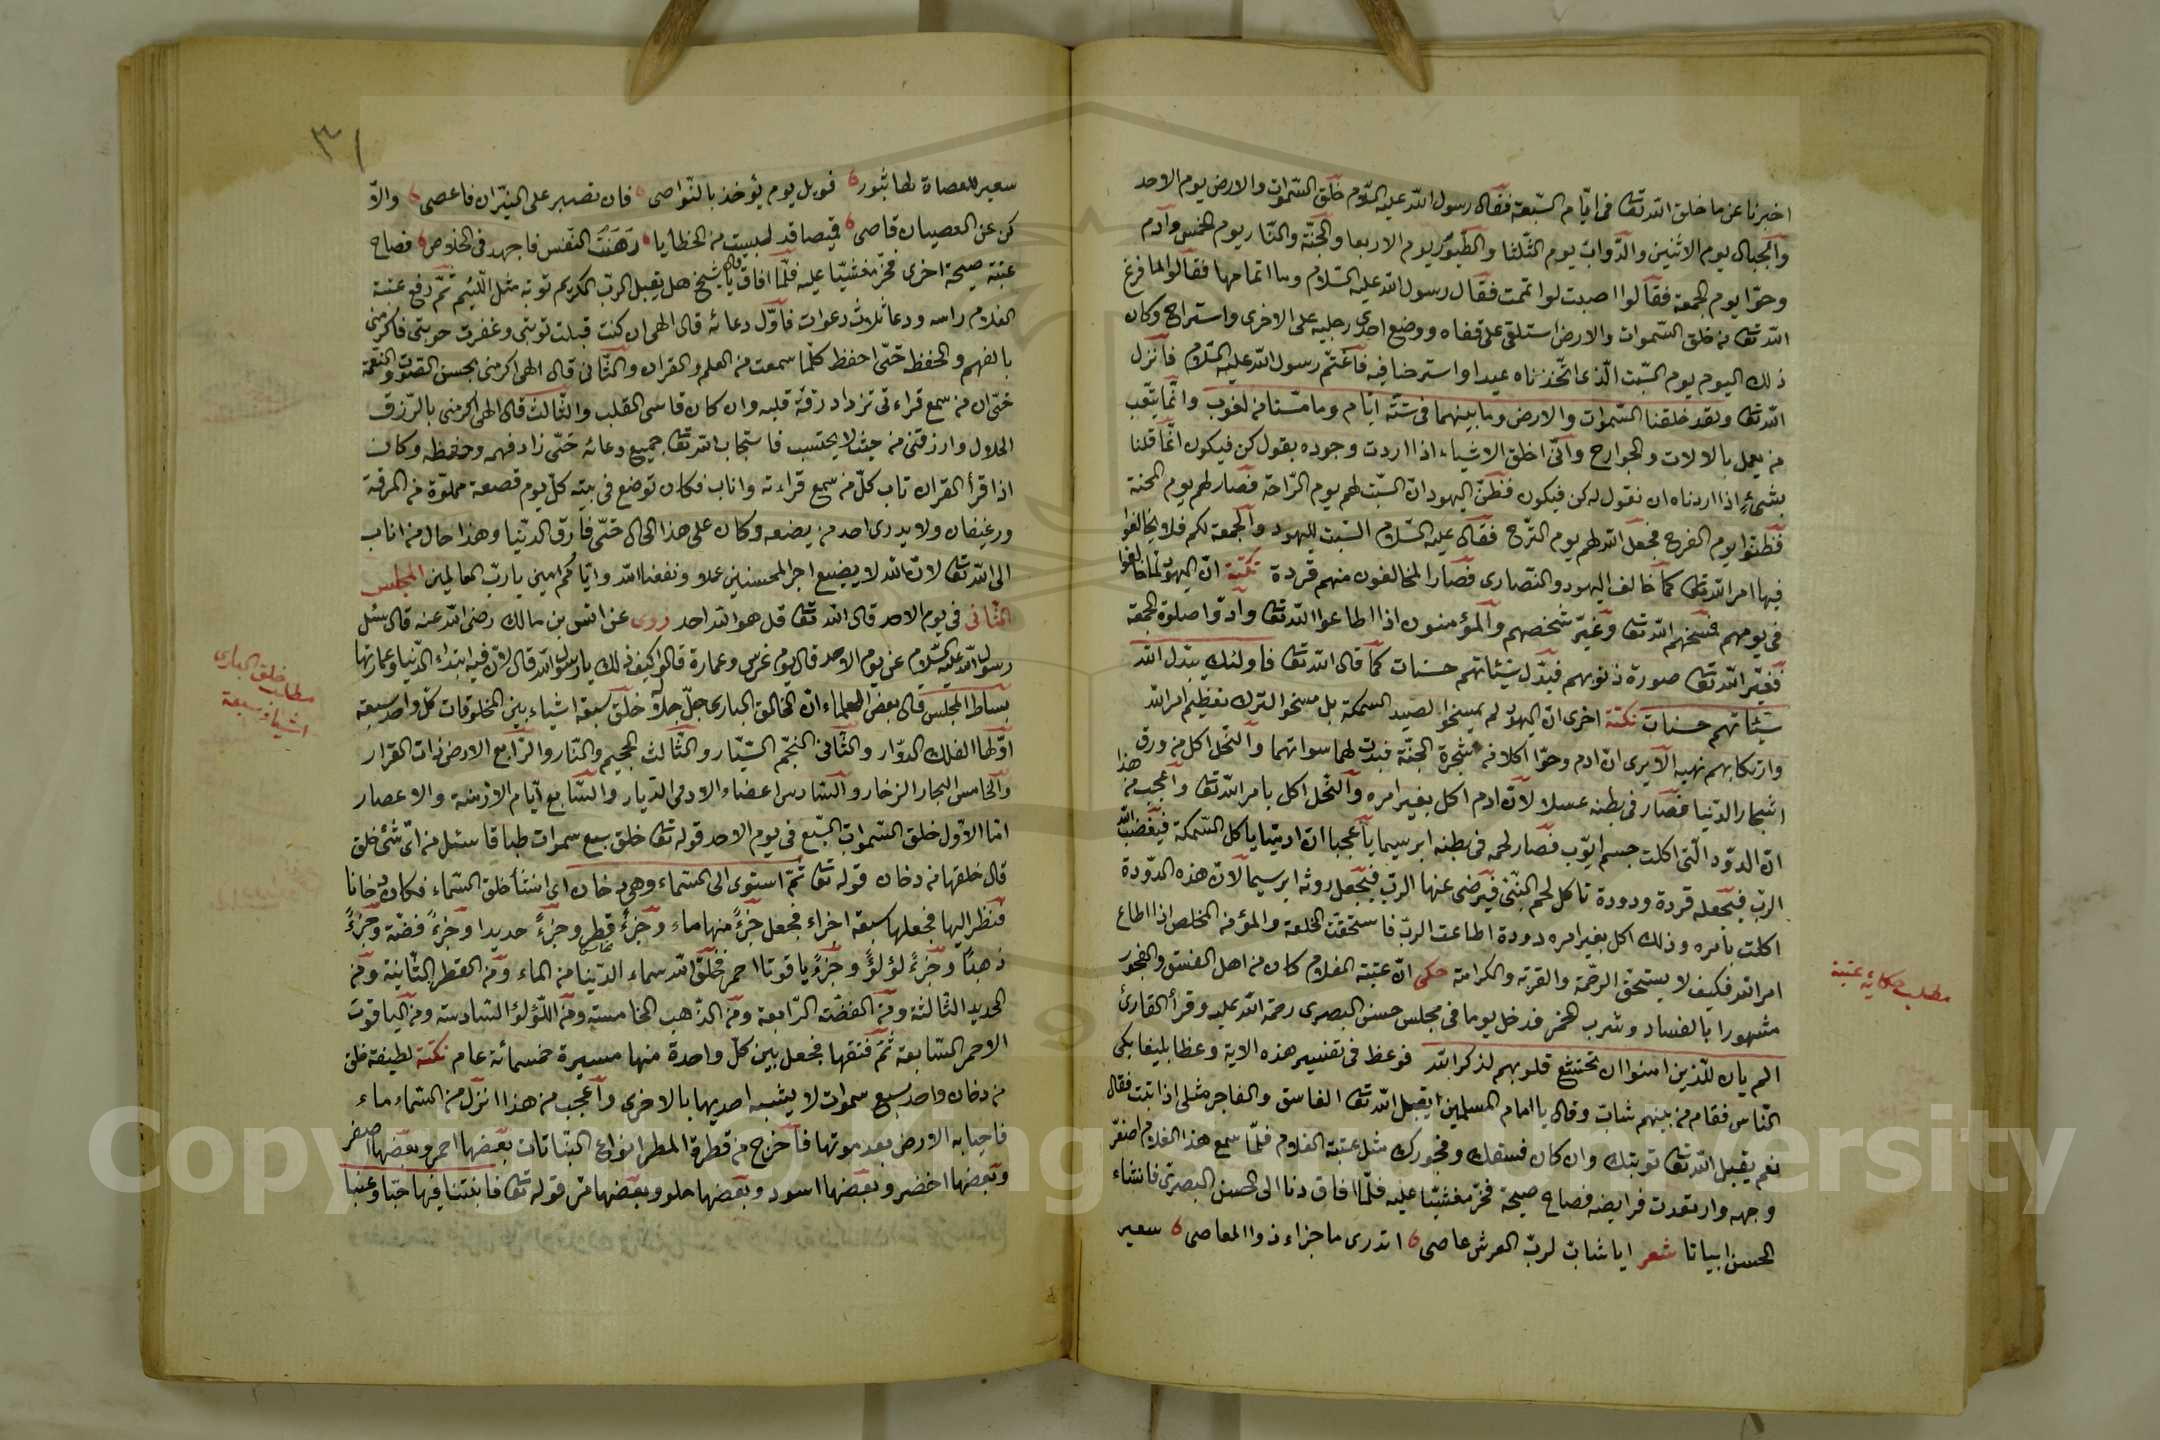 اخبرنا عن ما خلق الله تعا فى ايّام السّبعة فقال رسول الله عليه السّلام خلق السّموات والارض يوم الاحد
والجبال يوم الاثنين والدّواب يوم الثّلثا والطّيور يوم الاربعا والجنّة والنّار يوم الخميس وآدم
وحوّا يوم الجمعة فقالوا اصبت لو اتممت فقال رسول الله عليه السّلام وما اتمامها فقالوا لما فرغ
الله تعا من خلق السّموات والارض استلقى على قفاه ووضع احدى رجليه على الاخرى واستراح وكان
ذلك اليوم يوم السّبت الّذى اتّخذناه عيدا واسترضا فيه فاغتمّ رسول الله عليه السّلام فانزل
الله تعا ولقد خلقنا السّموات والارض وما بينهما فى ستّة ايّام وما مسّنا من لغوب وانّما يتّعب
من يعمل بالالات والجوارح وانّى اخلق الاشياء اذا اردت وجوده بقول كن فيكون انّما قلنا
بشىءٍ اذا اردناه ان نقول له كن فيكون فظنّ اليهود انّ السّبت لهم يوم الرّاحة فصار لهم يوم المحنة
فظنّوا يوم الفرح فجعل الله لهم يوم التّرح فقال عليه السّلام السّبت لليهود والجمعة لكم فلا يخالفوا
فيها امر الله تعا كما خالف اليهود والنّصارى فصار المخالفون منهم قردة نكتة انّ اليهود لمّا خالفوا
فى يومهم فمسخهم الله تعا وغيّر شخصهم والمؤمنون اذا اطاعوا الله تعا وادّوا صلوة الجمعة
فغيّر الله تعا صورة ذنوبهم فبدّل سيّئاتهم حسنات كما قال الله تعا فاولئك يبدّل الله
سيّئاتهم حسنات نكتة اخرى انّ اليهود لم يمسخوا لصيد السمكة بل مسخوا لترك تعظيم امر الله
وارتكابهم نهيه الا يرى ان ادم وحوّا اكلا من شجرة الجنّة فبدت لهما سواتهما والنّحل اكل من ورق
اشجار الدّنيا فصار فى بطنه عسلا لانّ ادم اكل بغير امره والنّحل اكل بامر الله تعا واعجب من هذا
انّ الدّود الّتى اكلت جسم ايّوب فصار لحمه فى بطنه ابريسما يا عجبا ان ادميّا ياكل السّمكة فيغضب الله
الربّ فيجعله قردة ودودة تاكل لحم النّبىّ فيرضى عنها الربّ فيجعل روثه ابريسما لانّ هذه الدّودة
اكلت بامره وذلك اكل بغير امره دودة اطاعت الربّ فاستحقت الخلعة والمؤمن المخلص اذا اطاع
امر الله فكيف لا يستحق الرحمة والقربة والكرامة حكى انّ عتبة الغلام كان من اهل الفسق والفجور
مشهورا بالفساد وشرب الخمر فدخل يوما فى مجلس حسن البصرى رحمة الله عليه وقرأ القارئ
الم يان للّذين امنوا ان تخشع قلوبهم لذكر الله فوعظ فى تفسير هذه الاية وعظا بليغا بكى
النّاس فقام من بينهم شابّ وقال يا امام المسلمين ايقبل الله تعا الفاسق والفاجر مثلى اذا تبت فقال
نعم يقبل الله تعا توبتك وان كان فسقك وفجورك مثل عتبة الغلام فلمّا سمع هذا الغلام اصفرّ
وجهه وارتعدت فرايضه فصاح صيحة فخرّ مغشيّا عليه فلمّا افاق دنا الى الحسن البصرى فانشاء
الحسن ابياتا شعر ايا شابّ لربّ العرش عاصى اتدرى ما جزاء ذوا المعاصى سعير
مطلب حكاية عتبة
٣١
سعير للعصاة لها ثبور فويل يوم يؤخذ بالنّواصى فان تصبر على النيّران فاعصى والّا
كن عن العصيان قاصى فيما قد لبست من الخطايا رهنت النّفس فاجهد فى الخلاص فصاح
عتبة صيحة اخرى فخرّ مغشيّا عليه فلمّا افاق قال يا شيخ هل يقبل الربّ الكريم توبة مثل اللّئيم ثمّ رفع عتبة
الغلام راسه ودعا ثلاث دعوات فاوّل دعائه قال الهى ان كنت قبلت توبتى وغفرت حوبتى فاكرمنى
بالفهم والحفظ حتّى احفظ كلّما سمعت من العلم والقران والثّانى قال الهى اكرمنى بحسن الصّوت والنّغمة
حتّى ان من سمع قراءتى تزداد رقّة قلبه وان كان قاسى القلب والثّالث قال الهى اكرمنى بالرّزق
الحلال وارزقنى من حيث لا يحتسب فاستجاب الله تعا جميع دعائه حتّى زاد فهمه وحفظه وكان
اذا قرأ القران تاب كلّ من سمع قراءته واناب فكان توضع فى بيته كلّ يوم قصعة مملوّة من المرقة
ورغيفان ولا يدرى احد من يضعه وكان على هذا الحال حتّى فارق الدّنيا وهذا حال من اناب
الى الله تعا لانّ الله لا يضيع اجر المحسنين عملا ونفعنا الله وايّاكم امين يا ربّ العالمين المجلس
الثّانى فى يوم الاحد قال الله تعا قل هو الله احد روى عن انس بن مالك رضى الله عنه قال سئل
رسول الله عليه السّلام عن يوم الاحد قال يوم غرس وعمارة قالوا كيف ذلك يا رسول الله قال لانّ فيه ابتداء الدّنيا وعمارتها
بساط المجلس قال بعض العلماء انّ الخالق البارى جلّ جلاله خلق سبعة اشياء بين المخلوقات كلّ واحد سبعة
اوّلها الفلك الدوّار والثّانى النّجم السّيّار والثّالث الجحيم والنّار والرّابع الارض ذات القرار
والخامس البحار الزخار والسّادس اعضاء الادمى الديار والسّابع ايّام الازمنة والاعصار
امّا الاوّل خلق السّموات السّبع فى يوم الاحد قوله تعا خلق سبع سموات طباقا سئل من اىّ شىء خلق
قال خلقها من دخان قوله تعا ثمّ استوى الى السّماء وهى دخان اى انشأ خلق السّماء فكان دخانا
فنظر اليها فجعلها سبعة اجزاء فجعل جزءً منها ماء وجزءً قطر وجزءً حديدا وجزءً فضّة وجزءً
ذهبًا وجزءً لؤلؤً وجزءً ياقوتا احمر فخلق الله سماء الدّنيا من الماء ومن القطر الثّانية ومن
الحديد الثّالثة ومن الفضّة الرّابعة ومن الذّهب الخامسة ومن اللّؤلؤ السّادسة ومن الياقوت
الاحمر السّابعة ثمّ فتقها فجعل بين كلّ واحدة منها مسيرة خمسمائة عام نكتة لطيفة خلق
من دخان واحد سبع سموات لا يشبه احديها بالاخرى واعجب من هذا انزل من السّماء ماء
فاحيا به الارض بعد موتها فاخرج من قطرة المطر انواع النّباتات بعضها احمر وبعضها اصفر
وبعضها اخضر وبعضها اسود وبعضها حلو وبعضها مرّ قوله تعا فانبتنا فيها حبّا وعنبا
مطلب خلق البارى
اشياء سبعة
Copyright © King University